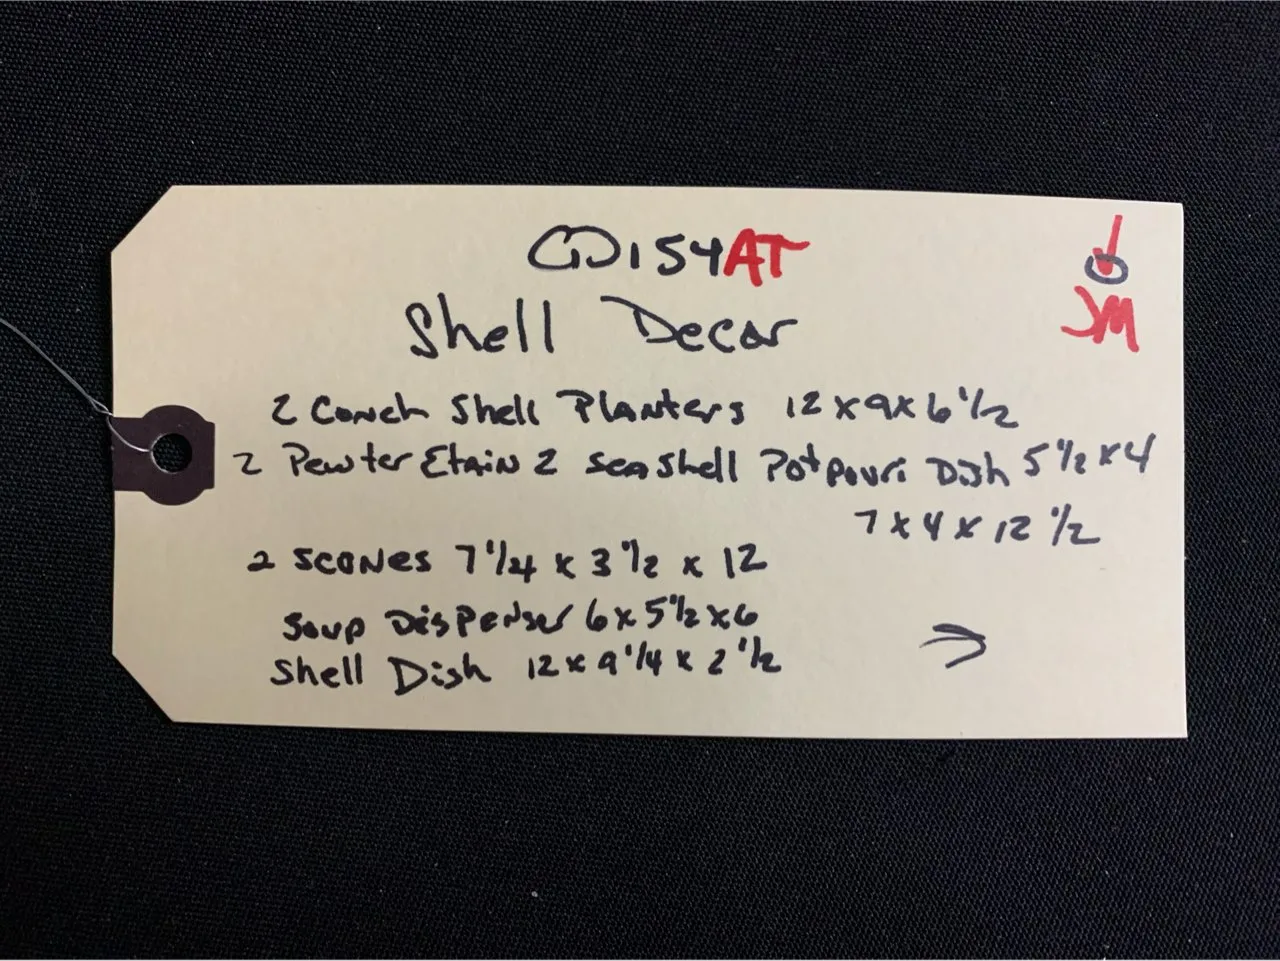 CD154AT
JM
Shell Decor
2 Conch Shell Planters 12 x 9 x 6 1/2
2 Pewter Etain 2 seashell Potpouri Dish 5 1/2 x 4
7 x 4 x 12 1/2
2 Scones 7 1/4 x 3 1/2 x 12
Soup Dispenser 6 x 5 1/2 x 6
Shell Dish 12 x 9 1/4 x 2 1/2